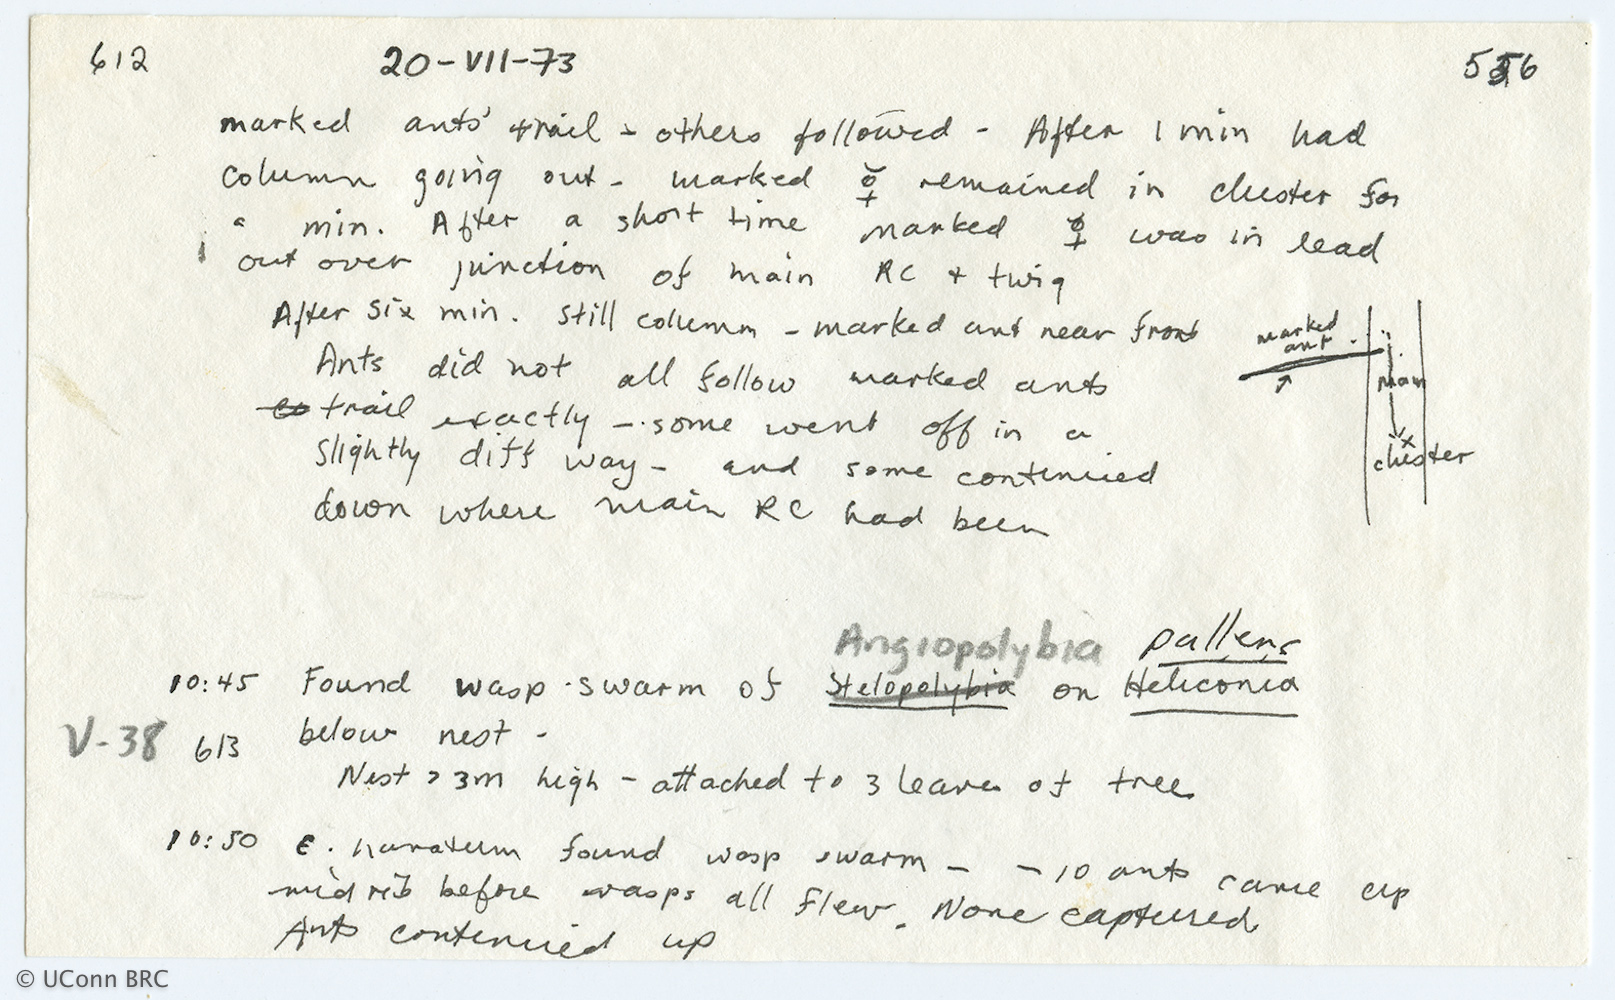 612 20-VII-73 5556
marked ants' trail & others followed - After 1 min had
column going out - marked ☿ remained in cluster for
1 min. After a short time marked ☿ was in lead
out over junction of main RC & twig
After six min. still column - marked ant near front
marked
ant
main
cluster
Ants did not all follow marked ants
trail exactly - some went off in a
slightly diff way - and some continued
down where main RC had been
Angiopolybia pallens
10:45 Found wasp swarm of Stelopolybia on Heliconia
V-38 613 below nest -
Nest > 3m high - attached to 3 leaves of tree
10:50 E. hamatum found wasp swarm - ~10 ants came up
midrib before wasps all flew. None captured.
Ants continued up
© UConn BRC